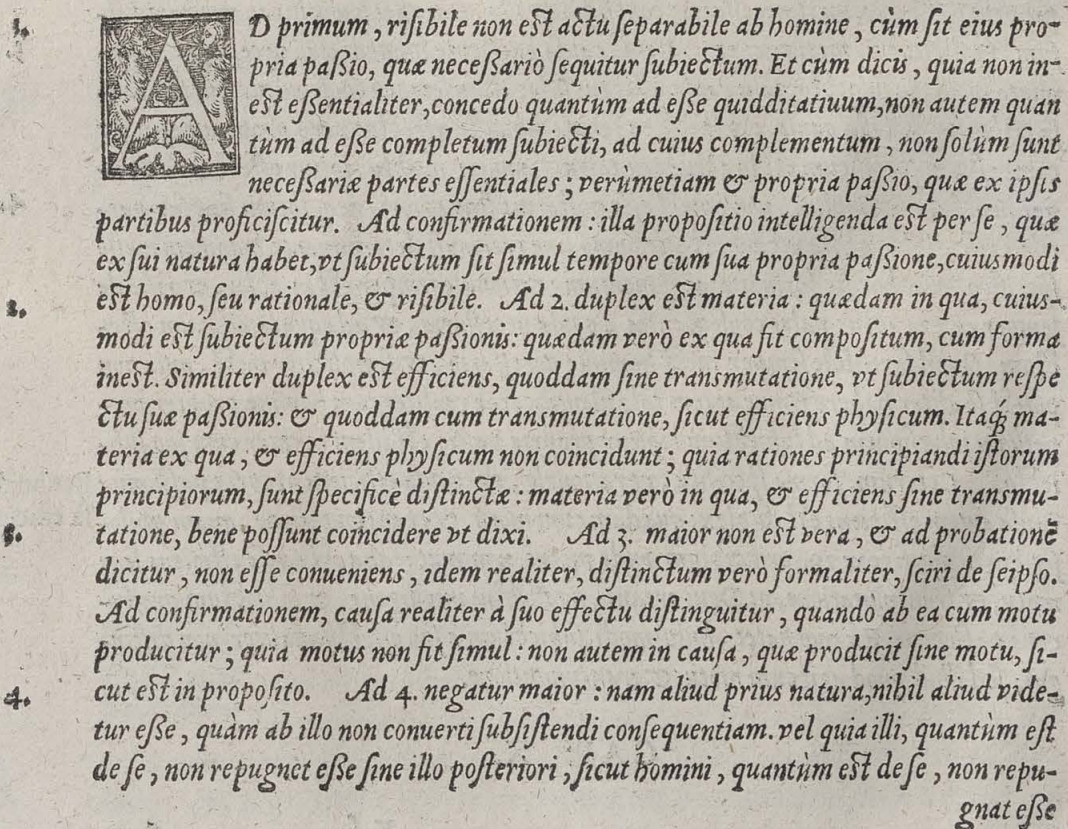 1.
AD primum, risibile non est actu separabile ab homine, cùm sit eius pro-
pria paßio, quæ neceßariò sequitur subiectum. Et cùm dicis, quia non in-
est eßentialiter, concedo quantùm ad eße quidditatiuum, non autem quan
tùm ad eße completum subiecti, ad cuius complementum, non solùm sunt
neceßariæ partes essentiales; verùmetiam & propria paßio, quæ ex ipsis
partibus proficiscitur. Ad confirmationem: illa propositio intelligenda est per se, quæ
ex sui natura habet, vt subiectum sit simul tempore cum sua propria paßione, cuiusmodi
2.
est homo, seu rationale, & risibile. Ad 2. duplex est materia: quædam in qua, cuius-
modi est subiectum propriæ paßionis: quædam verò ex qua fit compositum, cum forma
inest. Similiter duplex est efficiens, quoddam sine transmutatione, vt subiectum respe
ctu suæ paßionis: & quoddam cum transmutatione, sicut efficiens physicum. Itaq́; ma-
teria ex qua, & efficiens physicum non coincidunt; quia rationes principiandi istorum
principiorum, sunt specificè distinctæ: materia verò in qua, & efficiens sine transmu-
3.
tatione, bene possunt coincidere vt dixi. Ad 3. maior non est vera, & ad probationē
dicitur, non esse conueniens, idem realiter, distinctum verò formaliter, sciri de seipso.
Ad confirmationem, causa realiter à suo effectu distinguitur, quandò ab ea cum motu
producitur; quia motus non fit simul: non autem in causa, quæ producit sine motu, si-
4.
cut est in proposito. Ad 4. negatur maior: nam aliud prius natura, nihil aliud vide-
tur eße, quàm ab illo non conuerti subsistendi consequentiam. vel quia illi, quantùm est
de se, non repugnet eße sine illo posteriori, sicut homini, quantùm est de se, non repu-
gnat eße